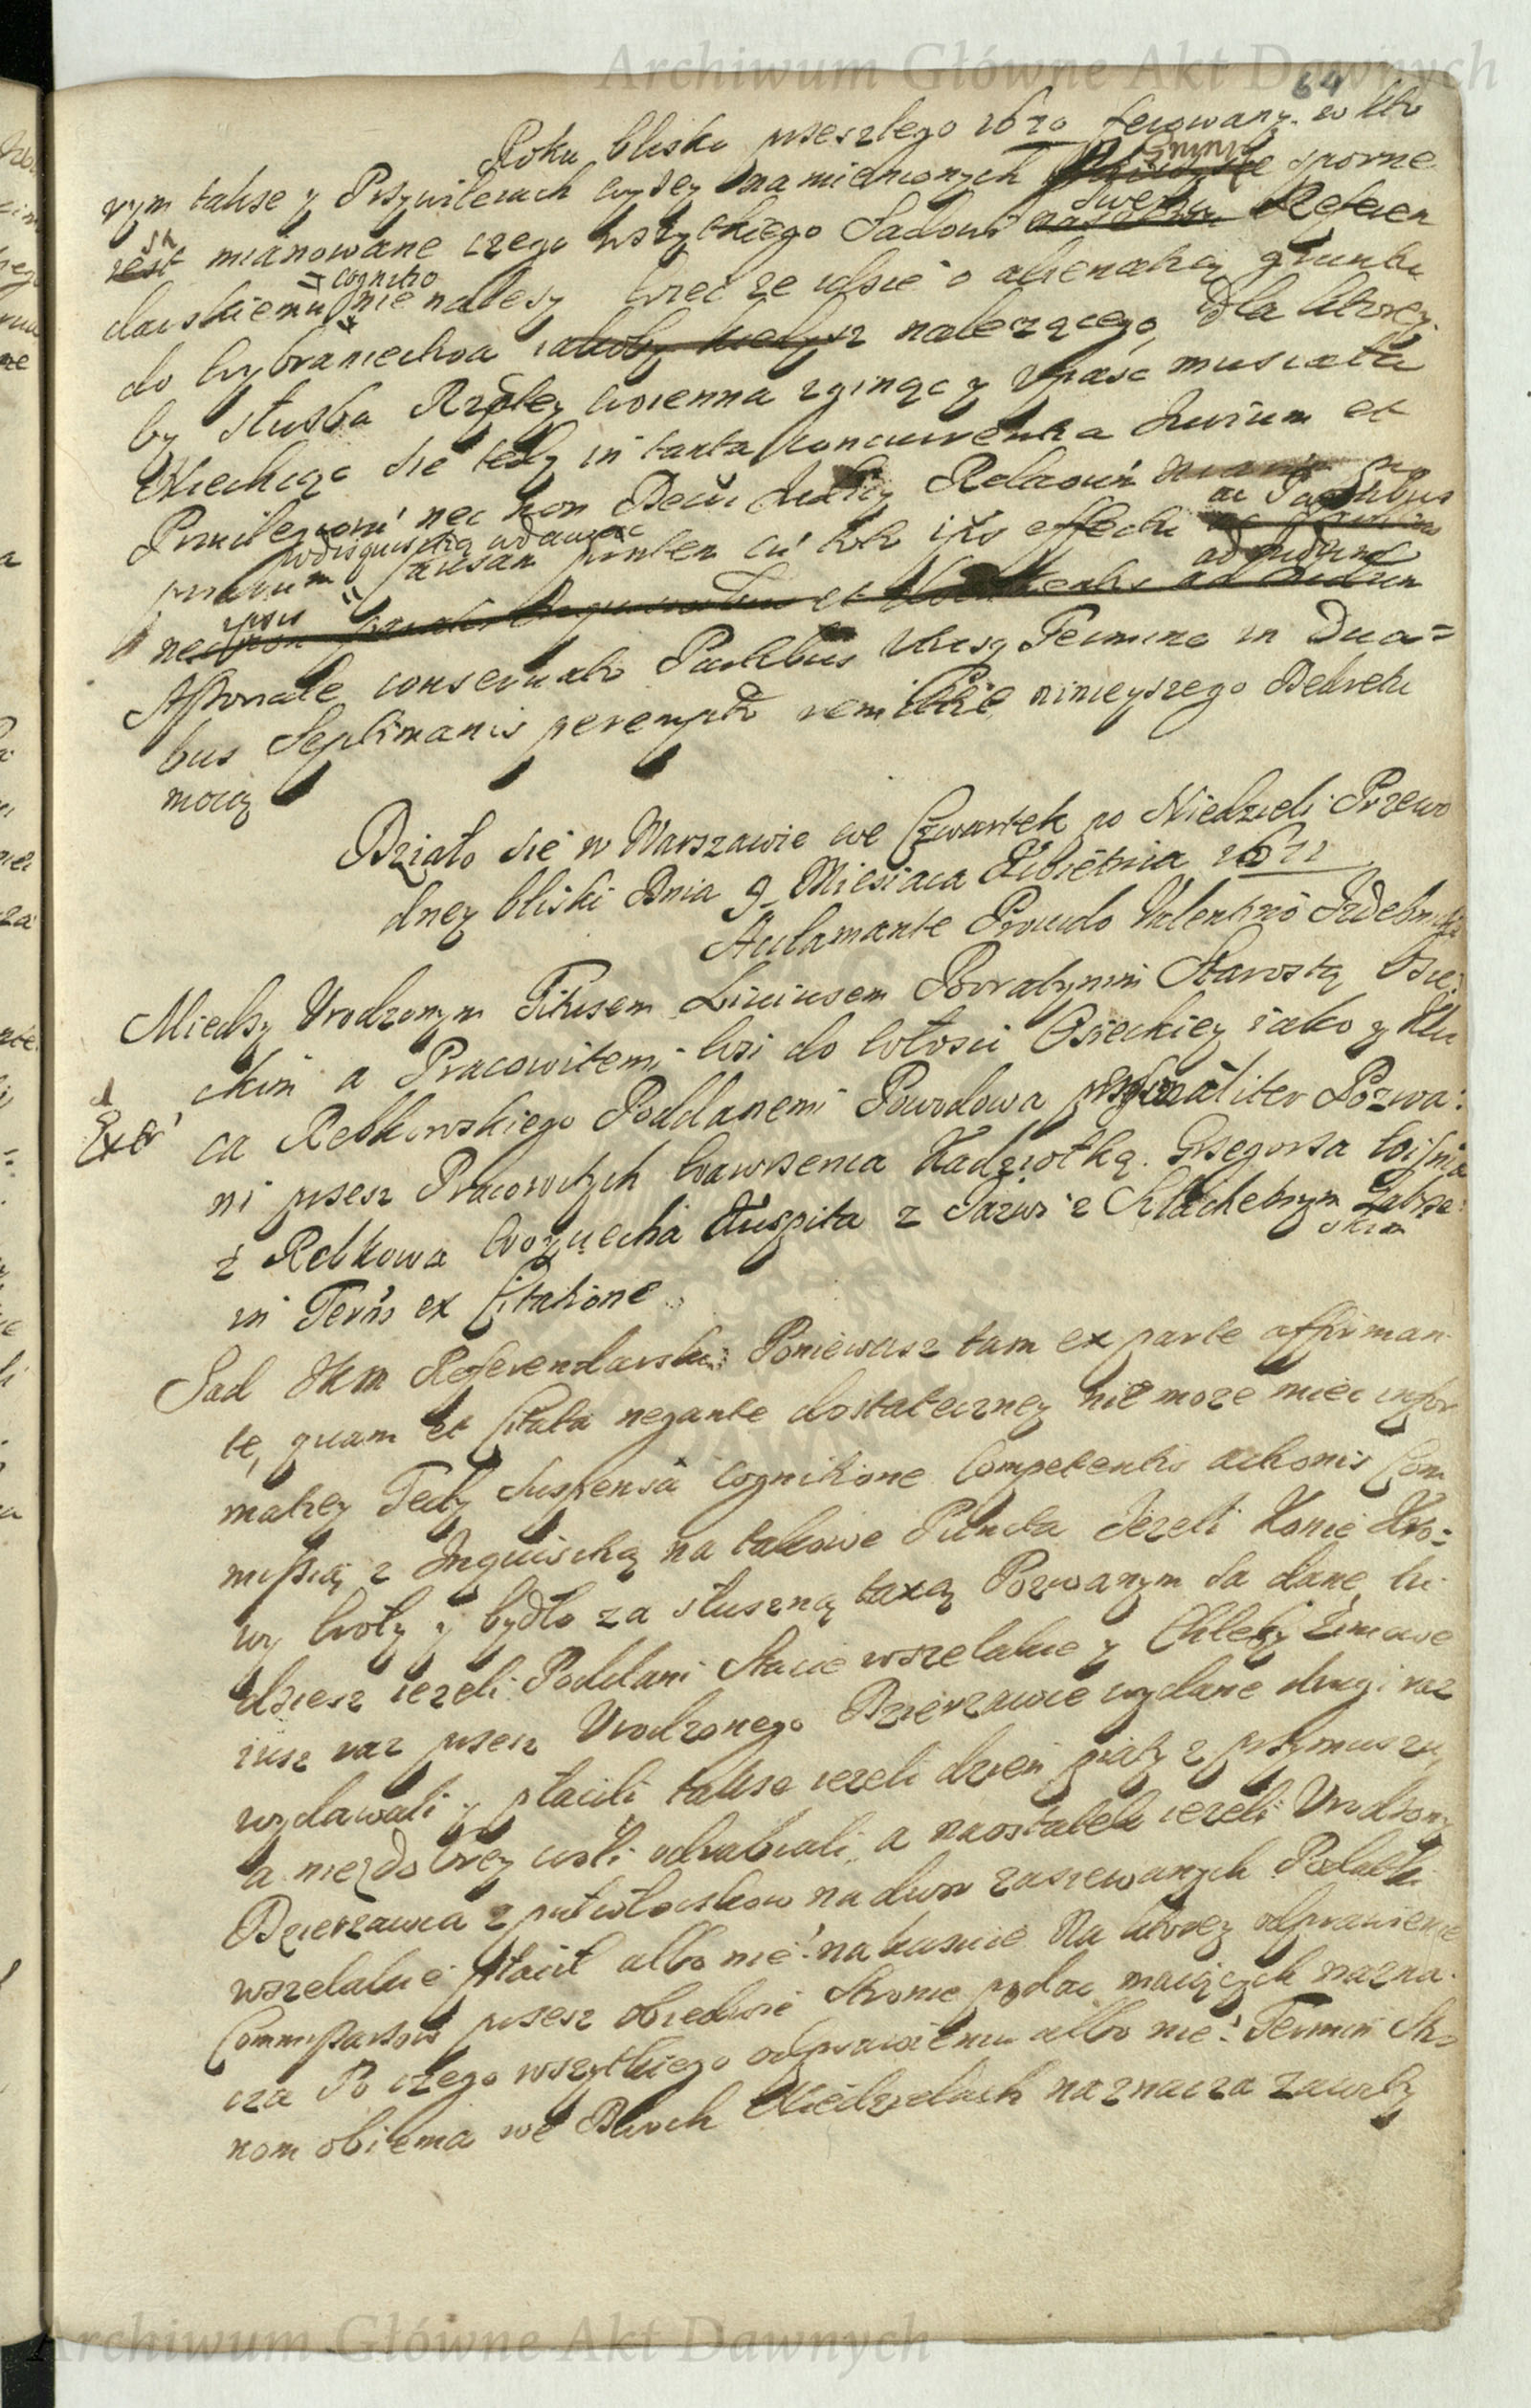 Archiwum Główne Akt Dawnych
64
Roku blisko przeszłego 1670 ferowany. w kto
rym takse y Przywileiach wyzey namienionych Grunta sporne
są mianowane czego wszytkiego Sadowi swemu Referen
darskiemu cognitio nie nalezy. Wiec ze idzie o alienatią gruntu
do wybraniectwa nalezącego, dla ktorey
by słuzba Rzptey woienna zginąc y upasc musiała
Niechcąc sie tedy in tanta concurrentia Jurium et
Privilegiorũ nec non Relaciom pro
ac Partibus
prodisquisitią udawac
Causam effectu
ad Judicium
ipsis
Assoriale conservato Partibus Termino in Dua=
bus Septimanis perempto remittit ninieyszego Dekretu
mocą
Działo sie w Warszawie we Czwartek po Niedzieli Przewo
dney bliski Dnia 9 Miesiaca Kwietnia 1671
Acclamante Provido Valentino
Miedzy Urodzonym Titusem Liviusem Boratynim Starostą Osie
ckim a Pracowitemi wsi do włosci Osieckiey iako y Klu
ca Rebkowskiego Poddanemi Powodowa personaliter Pozwa:
ni przez Pracowitych Wawrzenca Kadziołką. Grzegorza
z Rebkowa Woyciecha z Jazwi z Szlachetnym Zabrze:
skim
in Termino ex Citatione.
Exd
Sad JKM Referendarski: Poniewasz tam ex parte affirman
te, quam et Citata negante dostateczney nie moze miec infor
matiey Tedy suspensa cognitione Competentis actionis Com
missią z Inquisitią na takowe Puncta Jezeli Konie Kro:
wy woły y bydło za słuszną taxą Pozwanym sa dane, tu
dziesz iezeli Poddani Stacie wszelakie y Chleby zimowe
iusz raz przez Urodzonego Dzierzawce wydane drugi raz
wydawali y płacili takse iezeli dzien piąty z przymuszu,
a nie z dobrey woli odrabiali, a naostatek iezeli Urodzony
Dzierzawca z puł na dwor zasiewanych Podatki
wszelakie płacił albo nie: nakazuie Na ktorey odprawienie
Commissarzow przez obiedwie Stronie podac maiących nazna
cza Po czego wszytkiego odprawieniu albo nie: Termin Stro
nom obiema we Dwoch Niedzielach naznacza zawity
Archiwum Główne Akt Dawnych